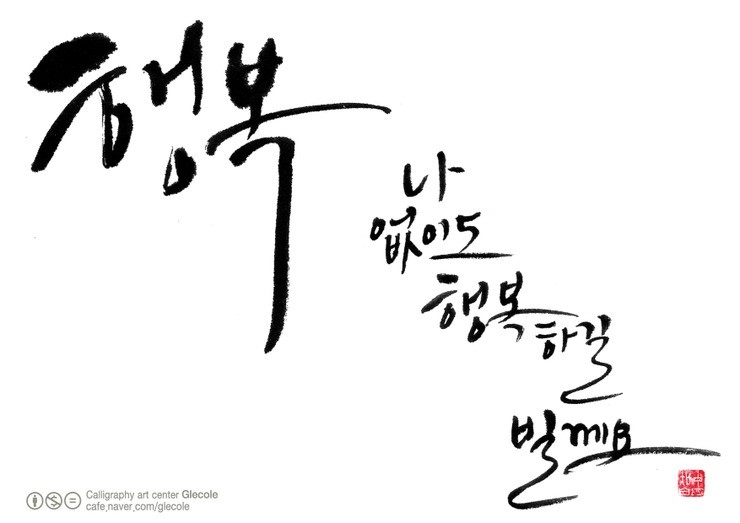 행복
나
없이도
행복하길
빌께요
Calligraphy art center Glecole
cafe,naver.com/glecole